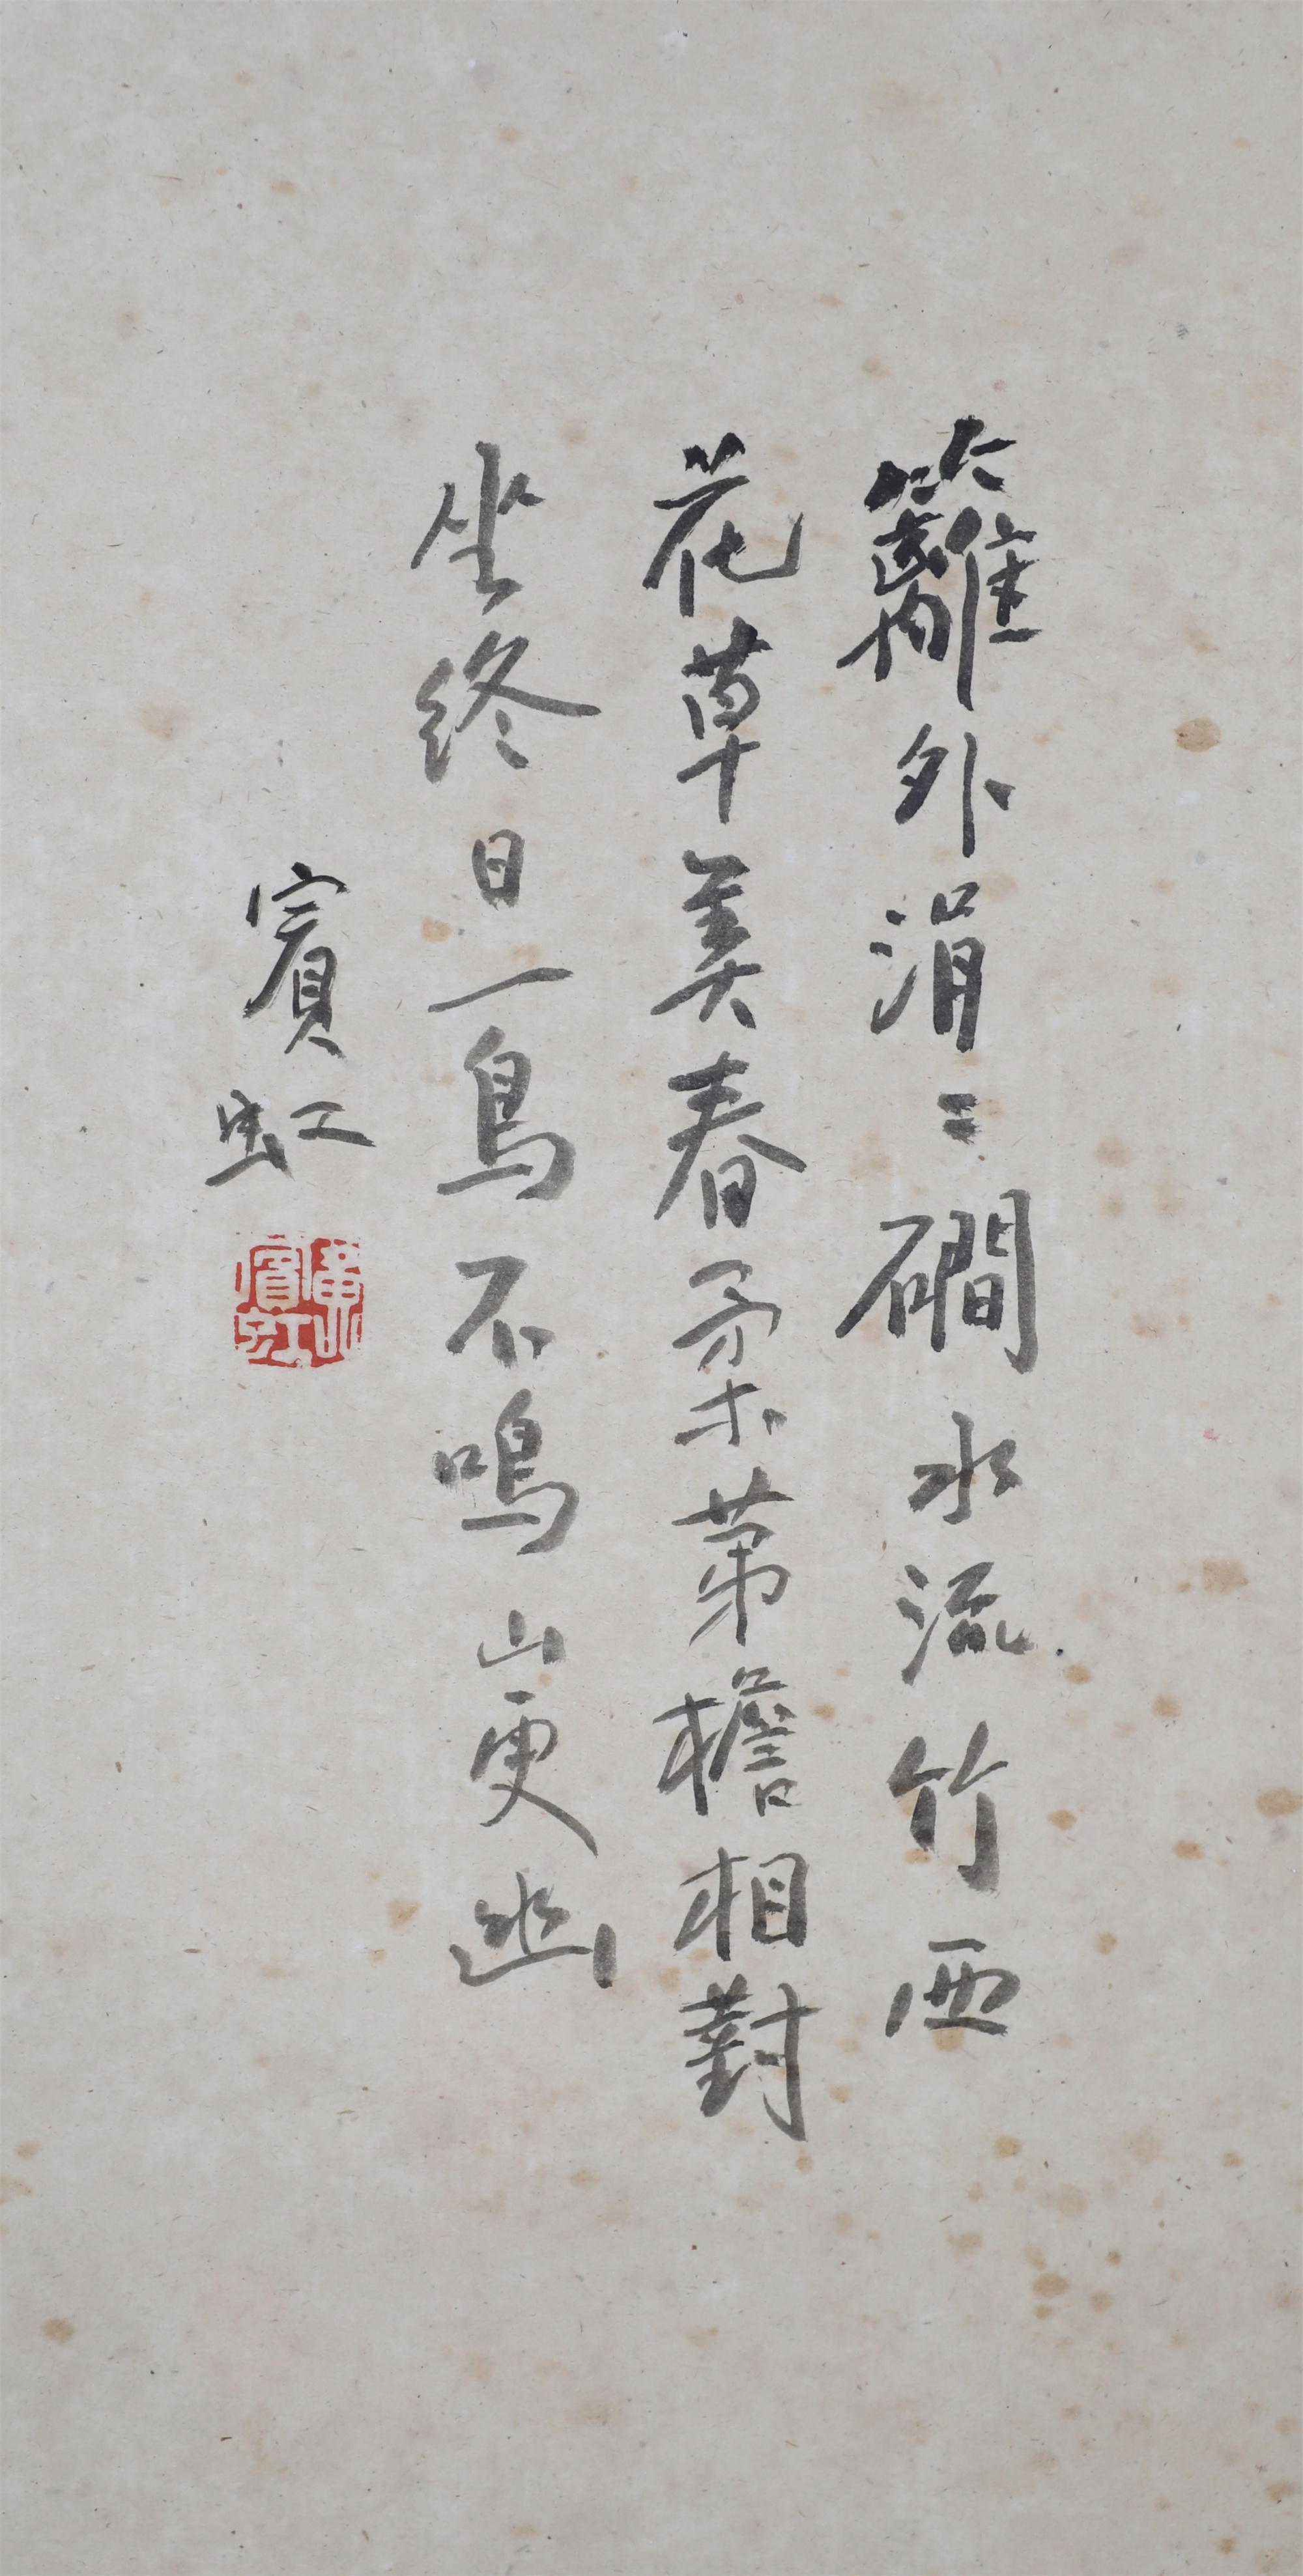 籬外涓〻磵水流竹西
花草美春柔茅檐相對
坐終日一鳥不鳴山更幽
賓虹
黃山賓虹